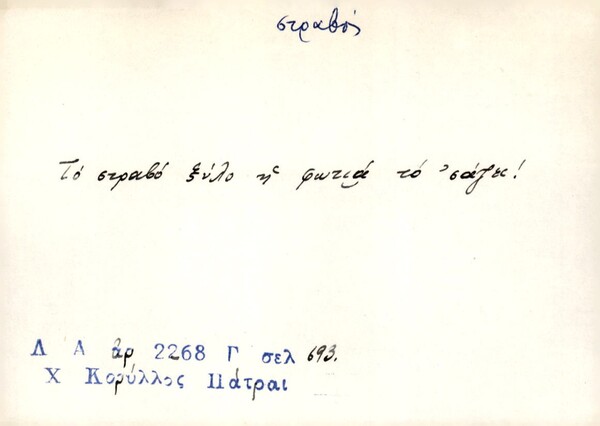 στραβός
Τό στραβό ξύλο ἡ φωτιά τό σάζει!
Λ Α ἀρ 2268 Γ σελ 693.
Χ Κορύλλος Πάτραι